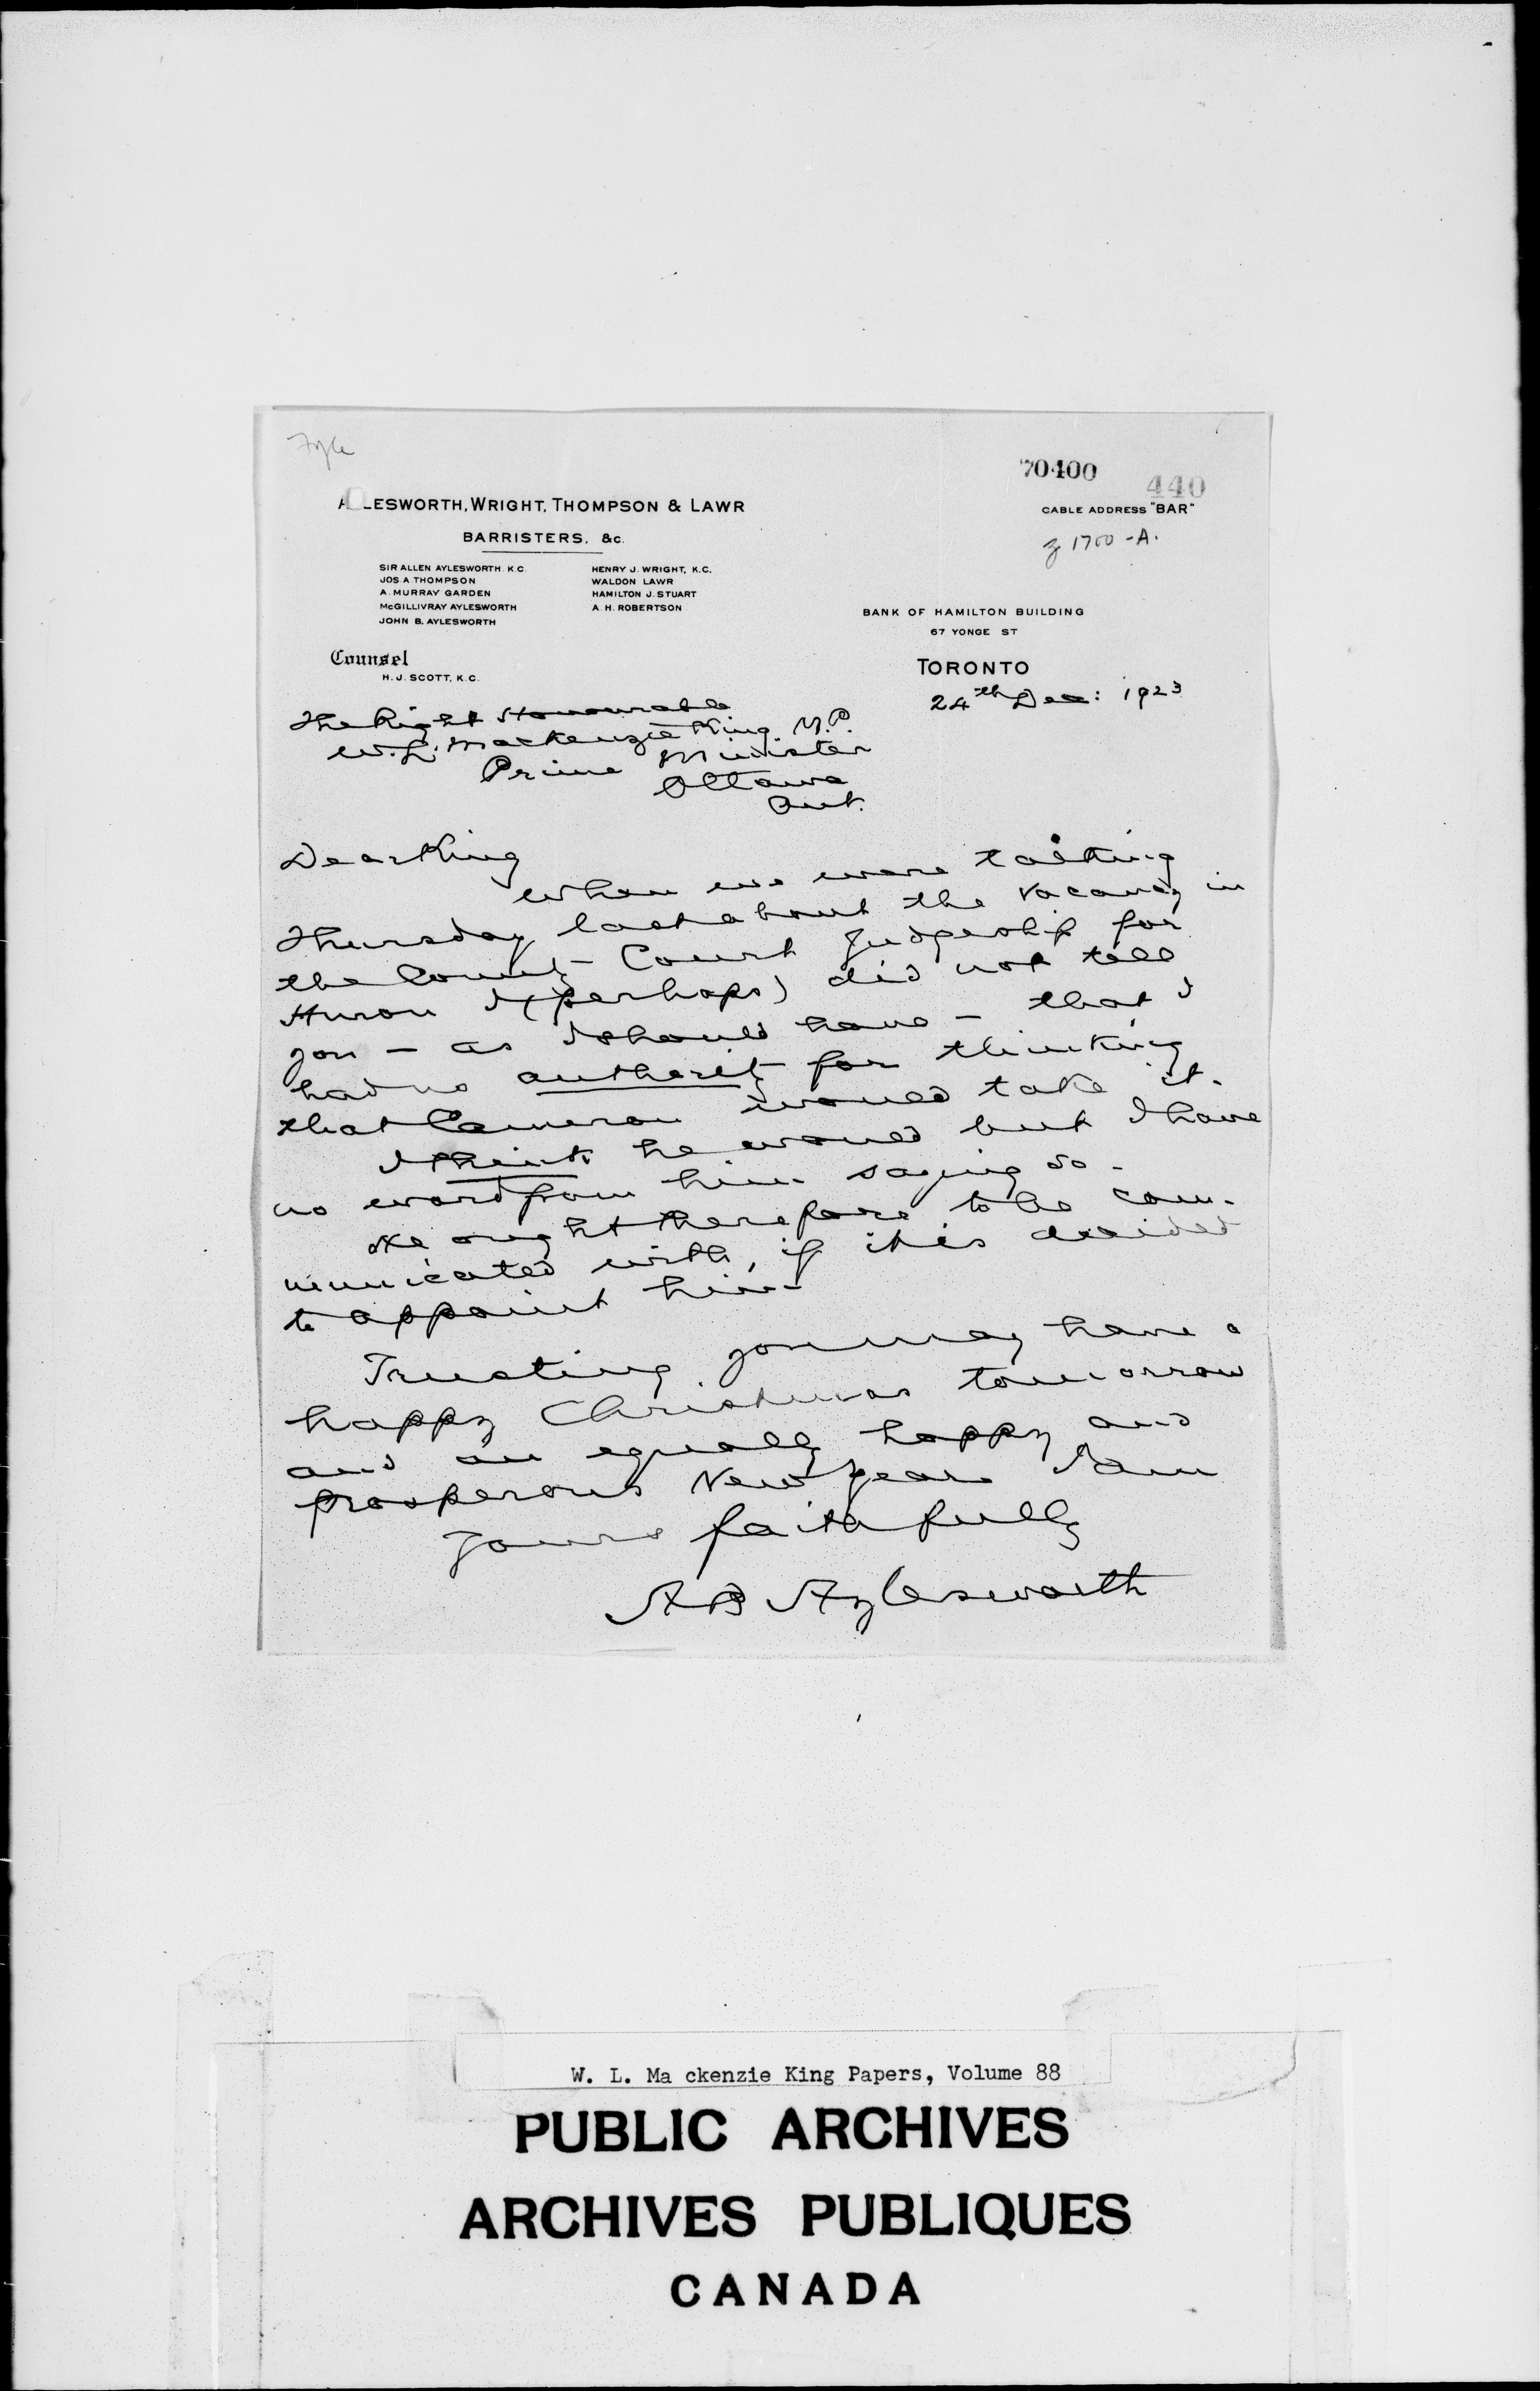 Fyle
70400
440
A LESWORTH, WRIGHT, THOMPSON & LAWR
CABLE ADDRESS "BAR"
BARRISTERS, &c.
1700-A.
SIR ALLEN AYLESWORTH. K.C.
HENRY J. WRIGHT, K.C.
JOS. A THOMPSON
WALDON LAWR
A. MURRAY GARDEN
HAMILTON J. STUART
McGILLIVRAY AYLESWORTH
A. H. ROBERTSON
JOHN B. AYLESWORTH
BANK OF HAMILTON BUILDING
67 YONGE ST
Counsel
H. J. SCOTT, K.C.
TORONTO
24th Dec: 1923
The Right Honourable
W. L. Mackenzie King. M.P.
Prime Minister
Ottawa
Ont.
Dear King
When we were talking
Thursday last about the vacancy in
the County Court Judgeship for
Huron I (perhaps) did not tell
you - as I should have - that I
had no authority for thinking
that Cameron would take it.
I think he would but I have
no word from him saying so.
He ought therefore to be com-
municated with, if it is decided
to appoint him
Trusting you may have a
happy Christmas tomorrow
and an equally happy and
prosperous New Year I am
Yours faithfully
A B Aylesworth
W. L. Ma ckenzie King Papers, Volume 88
PUBLIC ARCHIVES
ARCHIVES PUBLIQUES
CANADA